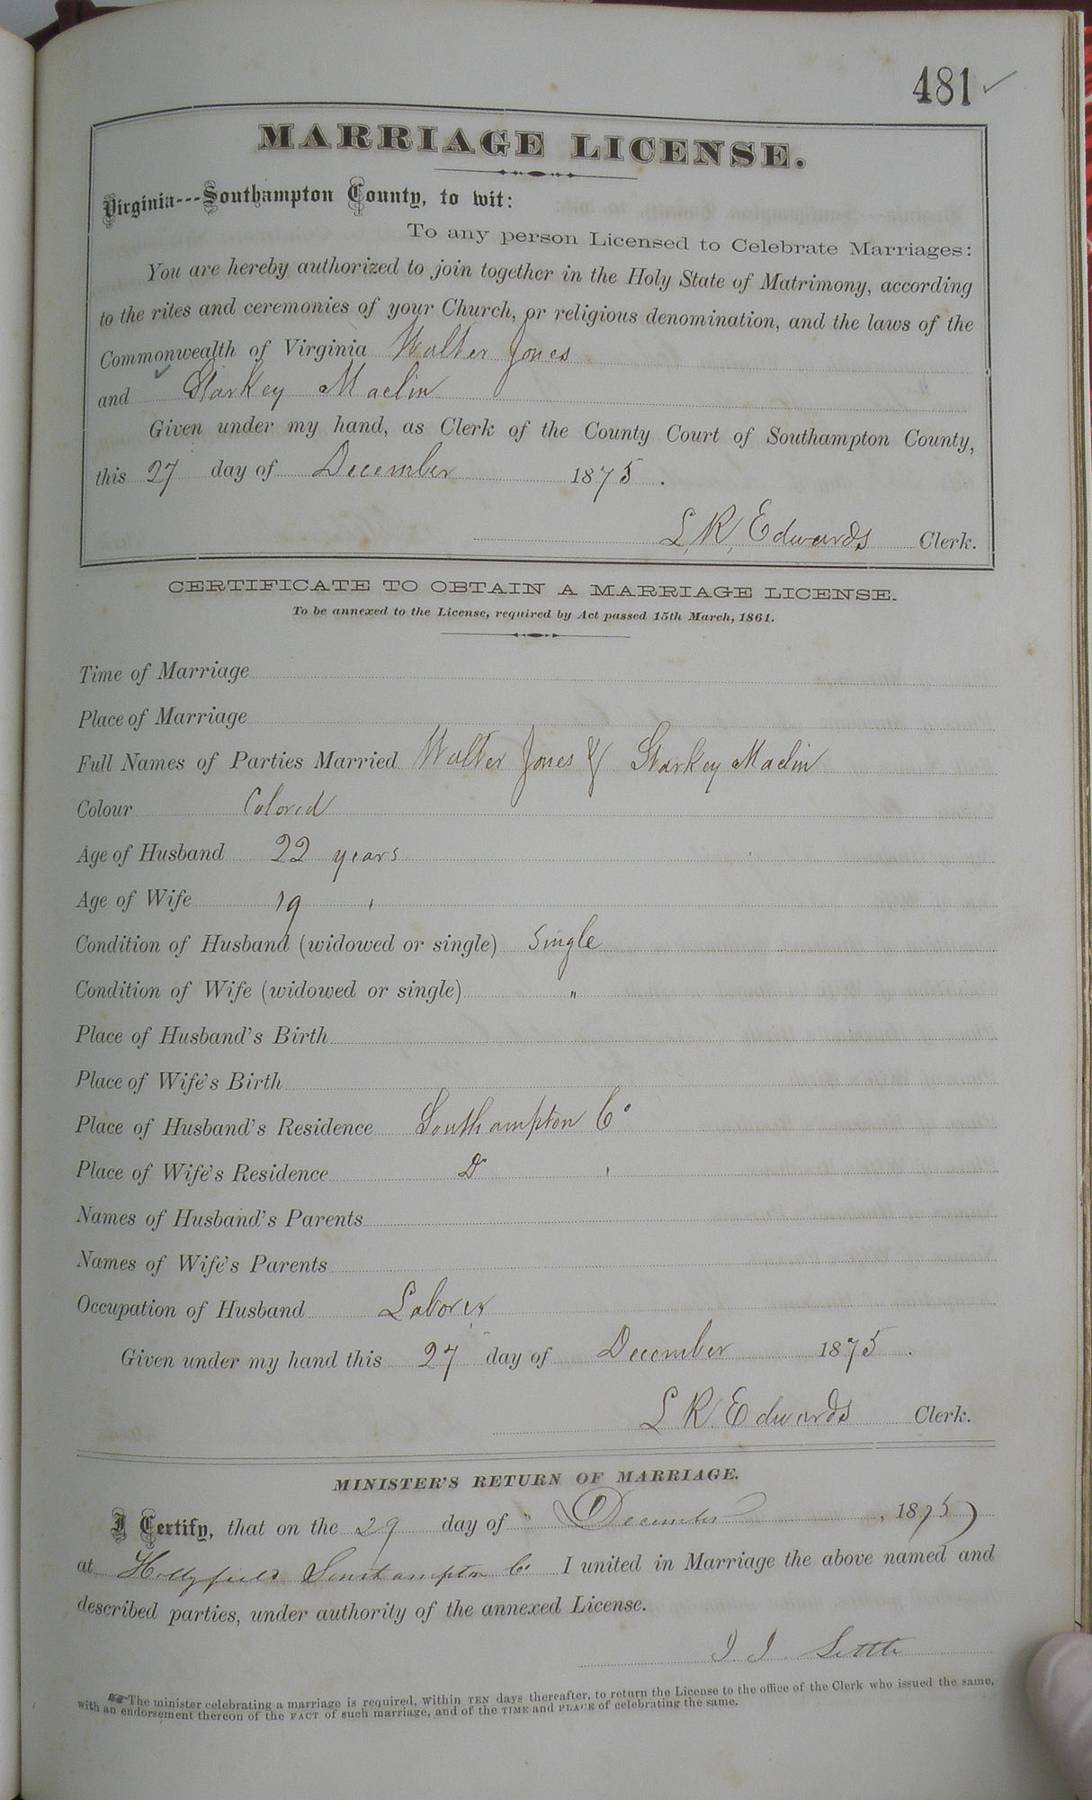 481 ✓
MARRIAGE LICENSE.
Virginia---Southampton County, to wit:
To any person Licensed to Celebrate Marriages:
You are hereby authorized to join together in the Holy State of Matrimony, according
to the rites and ceremonies of your Church, or religious denomination, and the laws of the
Commonwealth of Virginia Walter Jones
and Starkey Maclin
Given under my hand, as Clerk of the County Court of Southampton County,
this 27 day of December 1875.
L. R. Edwards Clerk.
CERTIFICATE TO OBTAIN A MARRIAGE LICENSE.
To be annexed to the License, required by Act passed 15th March, 1861.
Time of Marriage
Place of Marriage
Full Names of Parties Married Walter Jones & Starkey Maclin
Colour Colored
Age of Husband 22 years
Age of Wife 19 "
Condition of Husband (widowed or single) Single
Condition of Wife (widowed or single) "
Place of Husband's Birth
Place of Wife's Birth
Place of Husband's Residence Southampton Co
Place of Wife's Residence Do "
Names of Husband's Parents
Names of Wife's Parents
Occupation of Husband Laborer
Given under my hand this 27 day of December 1875.
L R. Edwards Clerk.
MINISTER'S RETURN OF MARRIAGE.
I Certify, that on the 29 day of December, 1875
at Hollyfield Southampton Co. I united in Marriage the above named and
described parties, under authority of the annexed License.
J. J. Settle
The minister celebrating a marriage is required, within TEN days thereafter, to return the License to the office of the Clerk who issued the same,
with an endorsement thereon of the FACT of such marriage, and of the TIME and PLACE of celebrating the same.